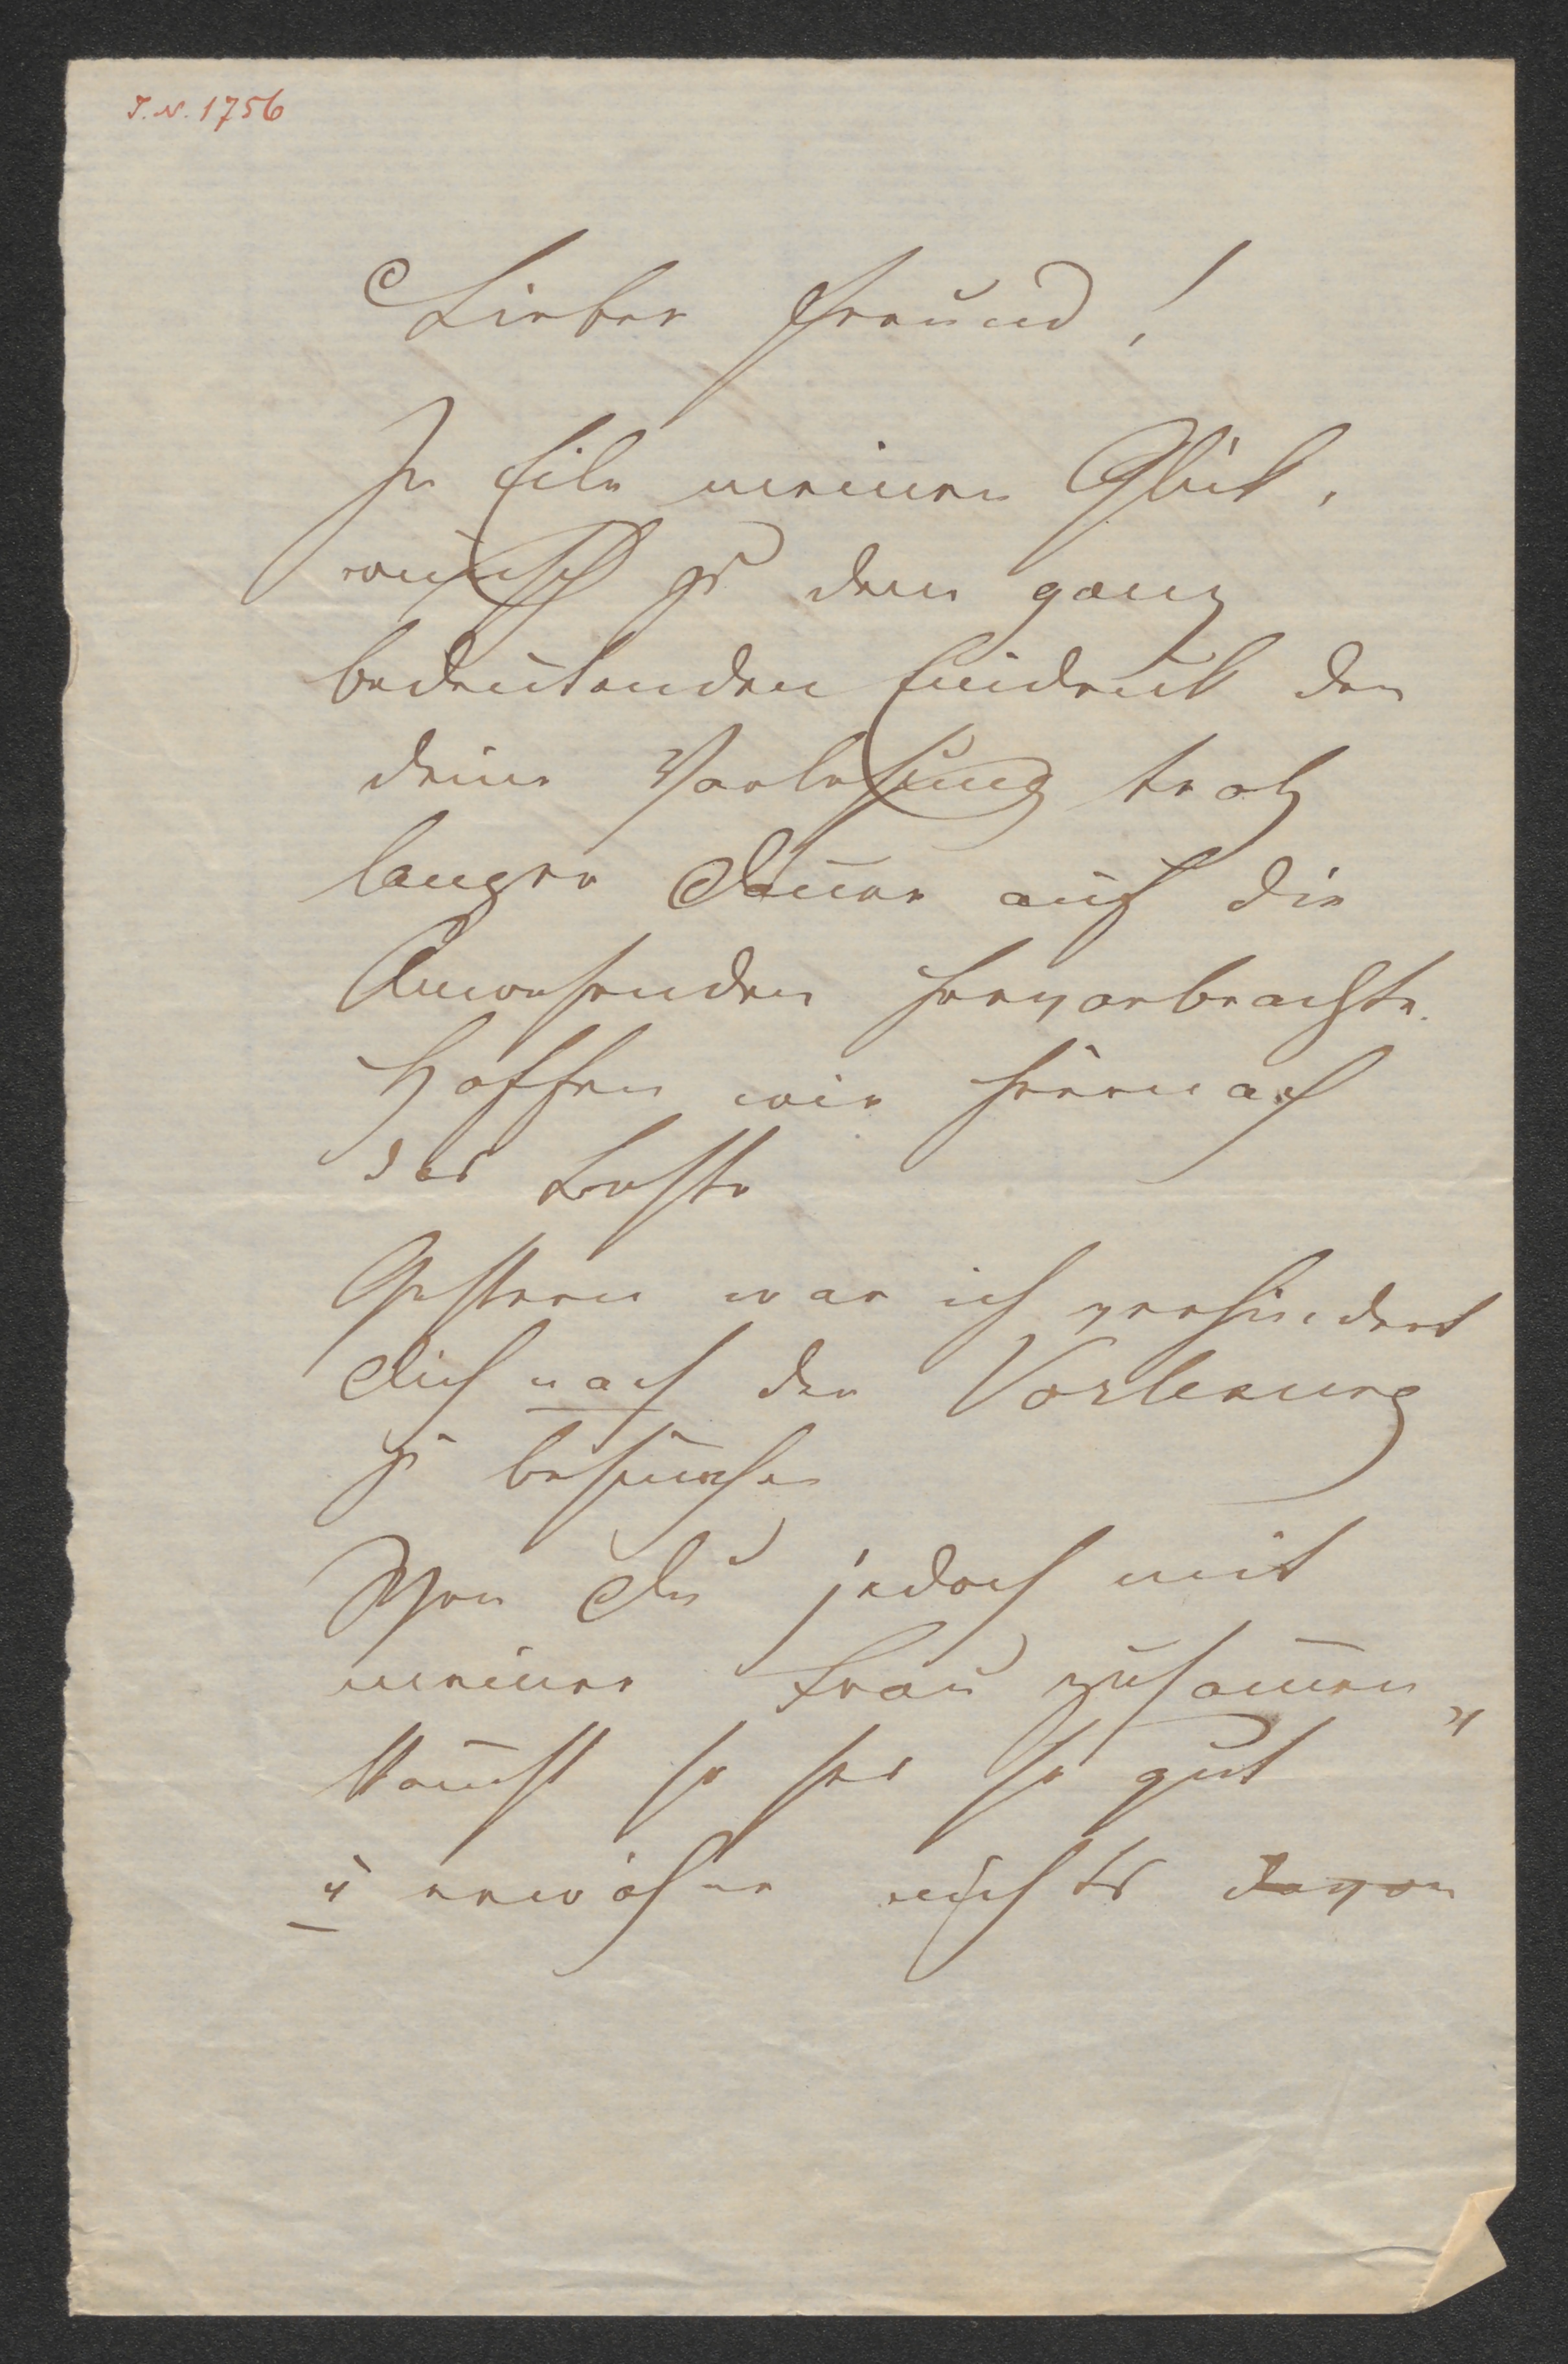 J. N. 1756
Lieber Freund!
In Eile meinen Glük,
wunsch zu dem ganz
bedeutenden Eindruk den
deine Vorlesung trotz
langer Dauer auf die
Anwesenden hervorbrachte.
Hoffen wir hernach
das Beste
Gestern war ich verhindert
Dich nach der Vorlesung
zu besuchen
Wen Du jedoch mit
meiner Frau zusamen
komst so sei so gut
u erwähne nichts davon